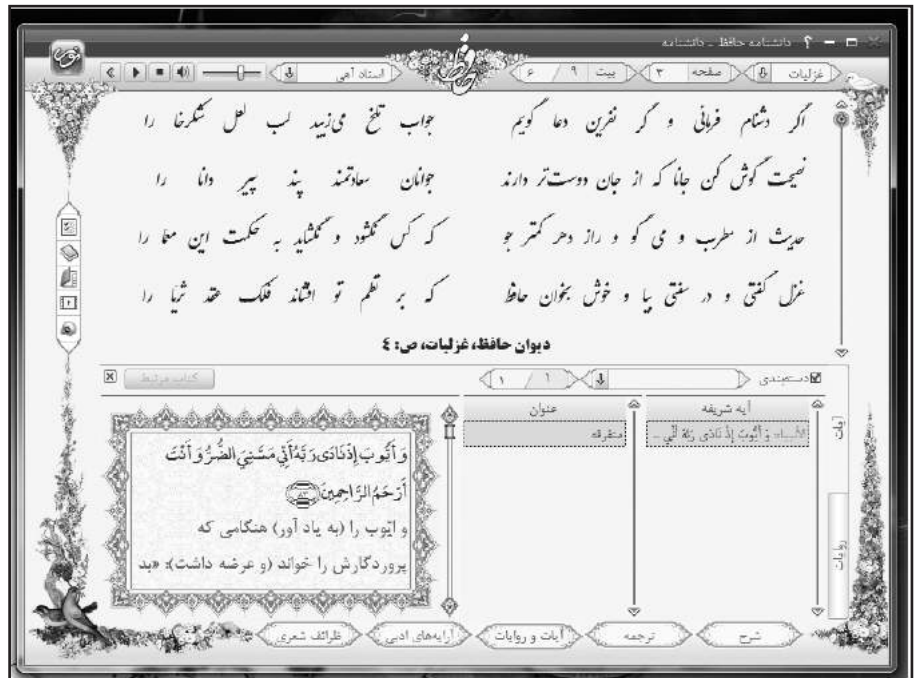 دانشنامه حافظ ـ دانشنامه
نور
غزلیات
صفحه ۳
بیت ۹ / ۶
حافظ
استاد آهی
اگر دشنام فرمائی و گر نفرین دعا گویم جواب تلخ می‌زیبد لب لعل شکرخا را
نصیحت گوش کن جانا که از جان دوست‌تر دارند جوانان سعادتمند پند پیر دانا را
حدیث از مطرب و می گو و راز دهر کمتر جو که کس نگشود و نگشاید به حکمت این معما را
غزل گفتی و در سفتی بیا و خوش بخوان حافظ که بر نظم تو افشاند فلک عقد ثریّا را
دیوان حافظ، غزلیات، ص: ٤
دسته‌بندی
۱ / ۱
کتاب مرتبط
آیات
روایات
آیه شریفه
الأنبياء: وَ أَيُّوبَ إِذْ نَادَى رَبَّهُ أَنِّي ...
عنوان
متفرقه
وَ أَيُّوبَ إِذْ نَادَى رَبَّهُ أَنِّي مَسَّنِيَ الضُّرُّ وَ أَنْتَ
أَرْحَمُ الرَّاحِمِينَ ۸۳
و ایّوب را (به یاد آور) هنگامی که
پروردگارش را خواند (و عرضه داشت): «بد
شرح
ترجمه
آیات و روایات
آرایه‌های ادبی
ظرائف شعری